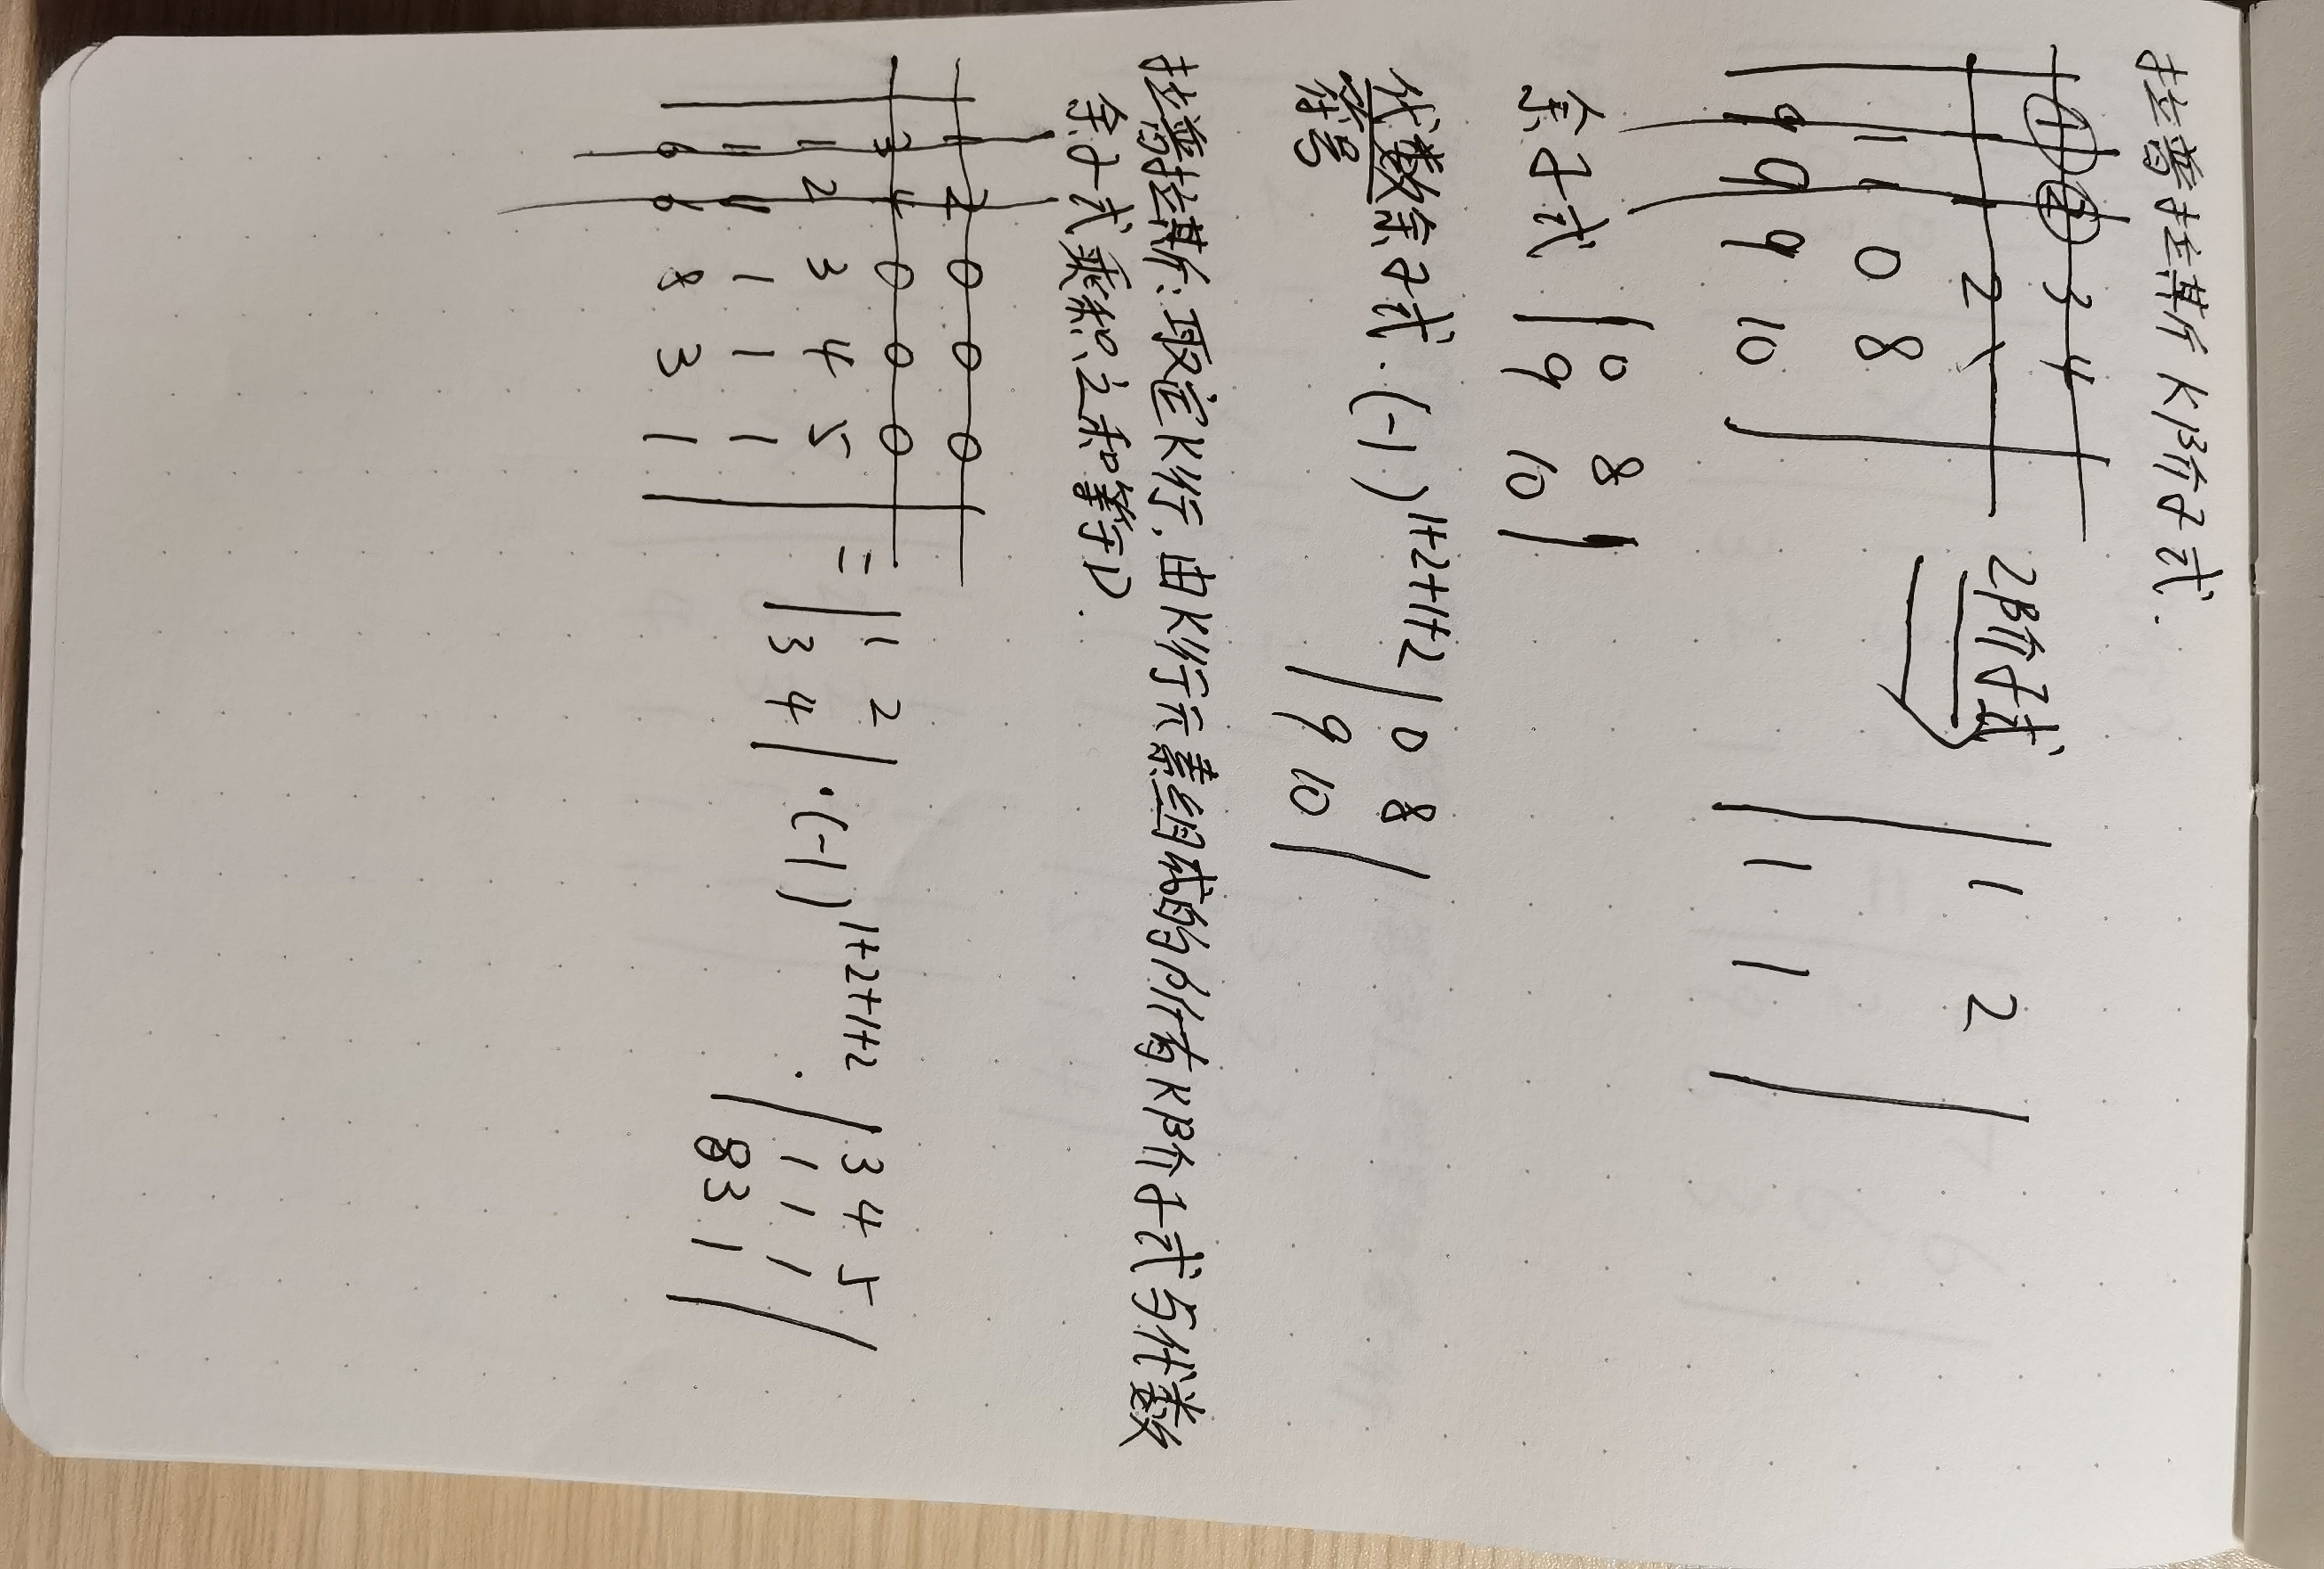 拉普拉斯 K阶子式.
① ② 3 4
1 1 2 1
1 1 0 8
9 9 9 10
2阶子式
| 1 2 |
| 1 1 |
余子式 | 0 8 |
| 9 10 |
代数余子式·(-1)^{1+2+1+2} | 0 8 |
| 9 10 |
符号
拉普拉斯:取定K行,由K行元素组成的所有K阶子式与代数
余子式乘积之和等于D.
| 1 2 0 0 0 |
| 3 4 0 0 0 |
| 1 2 3 4 5 |
| 1 1 1 1 1 |
| 6 6 8 3 1 |
= | 1 2 | ·(-1)^{1+2+1+2} · | 3 4 5 |
| 3 4 | | 1 1 1 |
| 8 3 1 |